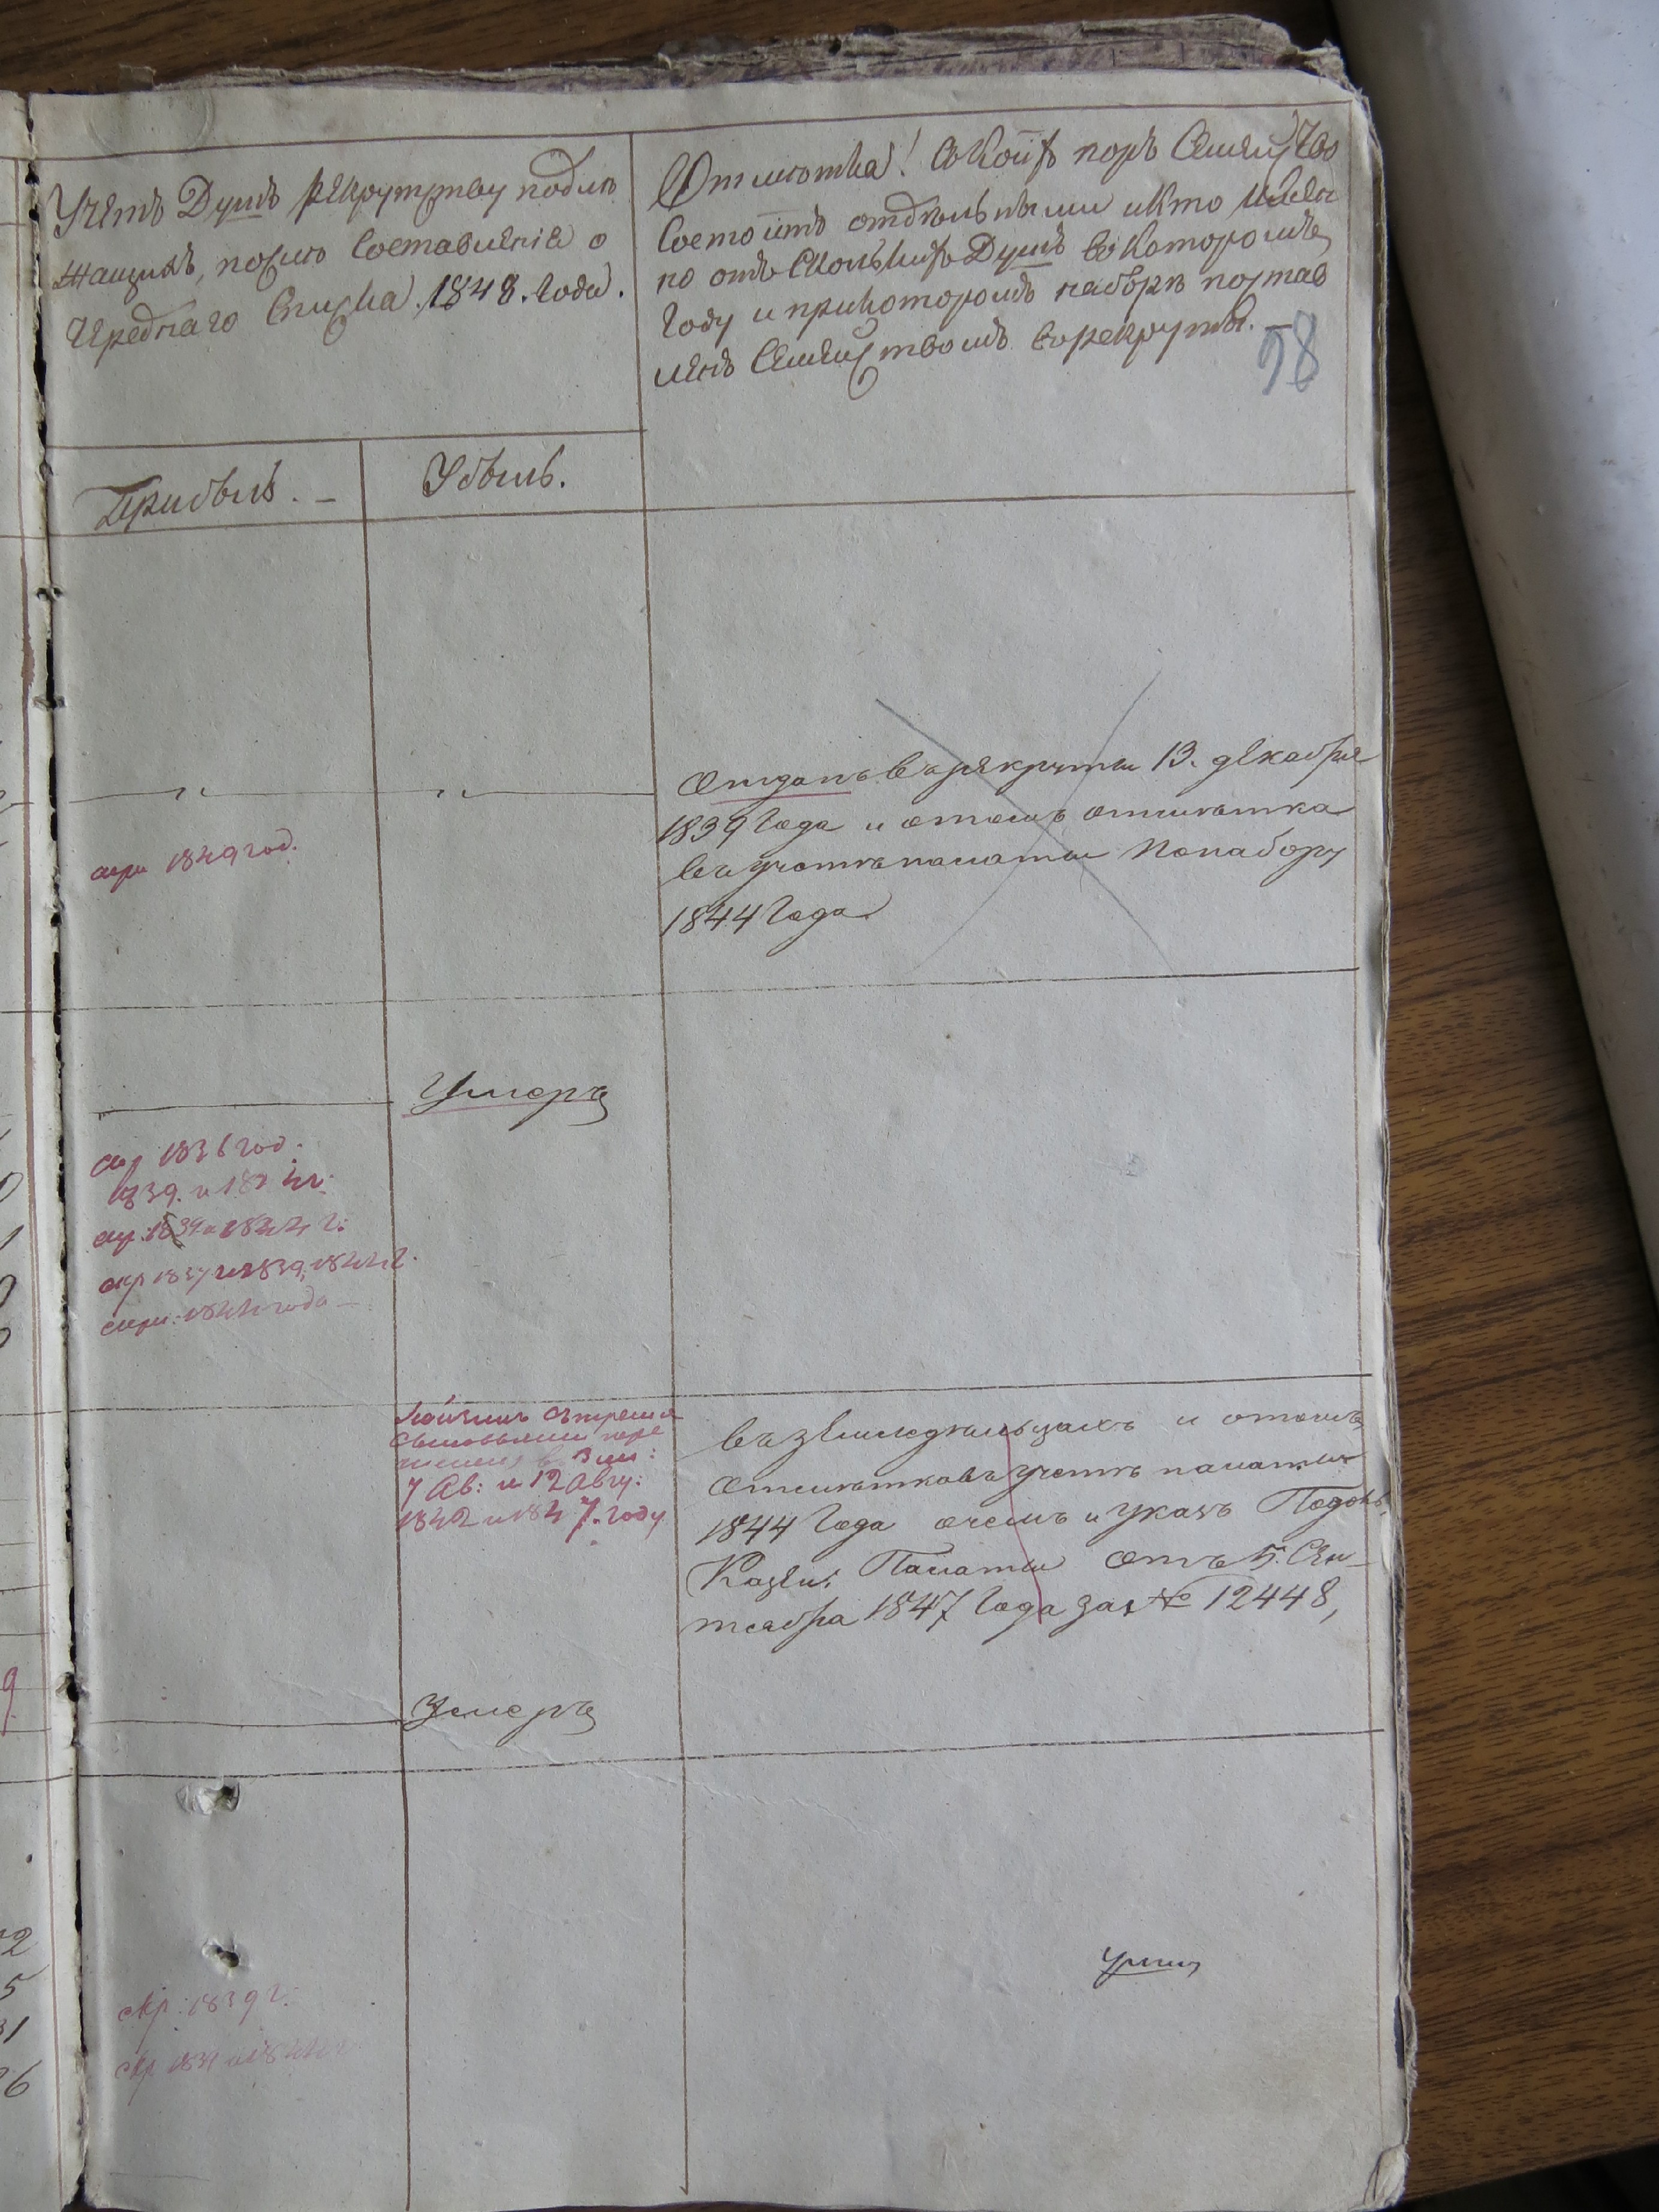 Учетъ Душъ рекрутству подле
жащихъ, после составленія о
чреднаго Списка 1848. Года.
Отметка! Съ коихъ поръ Семейство
состоитъ отдельными и кто имен
но отъ сколькихъ Душъ въ Которомъ
Году и при которомъ наборе постав
ленъ Семействомъ въ рекруты. —
98
Прибыль. —
Убыль.
Отданъ въ рекруты 13. декабря
1839 Года и отомъ отметка
въ учете палаты по набору
1844 Года
1849 год.
Умеръ
1836 год.
1839. и
1839 и 1844 г:
1837 1839, 1844 г.
1844 года —
съ тремя
сыновьями
в Зем:
7 Ав: и 12 Авгу:
1842 и 1847. году
въ земледельцахъ и отомъ
отметка въ учете палаты
1844 Года очемъ и указъ Подоль.
Казен. Палаты отъ 5. Сен-
тября 1847 Года за № 12448,
Умеръ
умеръ
1839 г.
1839 и 1844